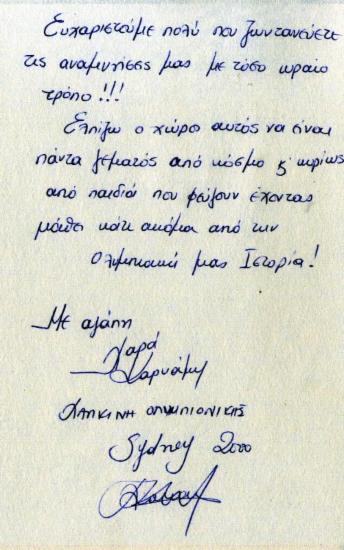 Ευχαριστούμε πολύ που ζωντανεύετε
τις αναμνήσεις μας με τόσο ωραίο
τρόπο!!!
Ελπίζω ο χώρος αυτός να είναι
πάντα γεμάτος από κόσμο & κυρίως
από παιδιά που φεύγουν έχοντας
μάθει κάτι ακόμα από την
Ολυμπιακή μας Ιστορία!
Με αγάπη
Χαρά
Καρυάμη
ΧΑΛΚΙΝΗ ΟΛΥΜΠΙΟΝΙΚΗΣ
Sydney 2000